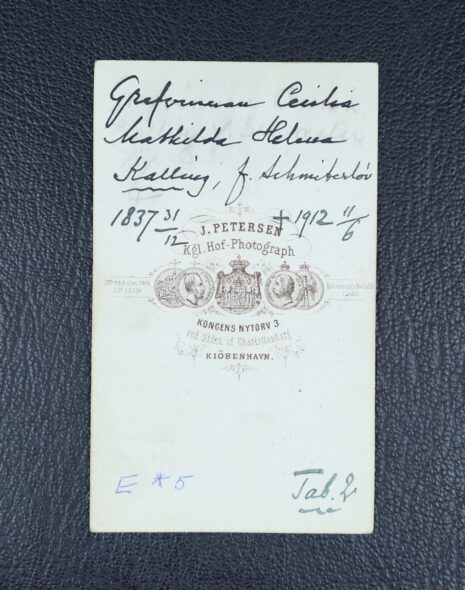 Grefvinnan Cecilia
Mathilda Helena
Kalling, f. Schmiterlöw
1837 31/12 † 1912 11/6
J. PETERSEN
Kgl. Hof-Photograph
KONGENS NYTORV 3
ved Siden af Charlottenborg
KIÖBENHAVN.
E * 5
Tab. 2